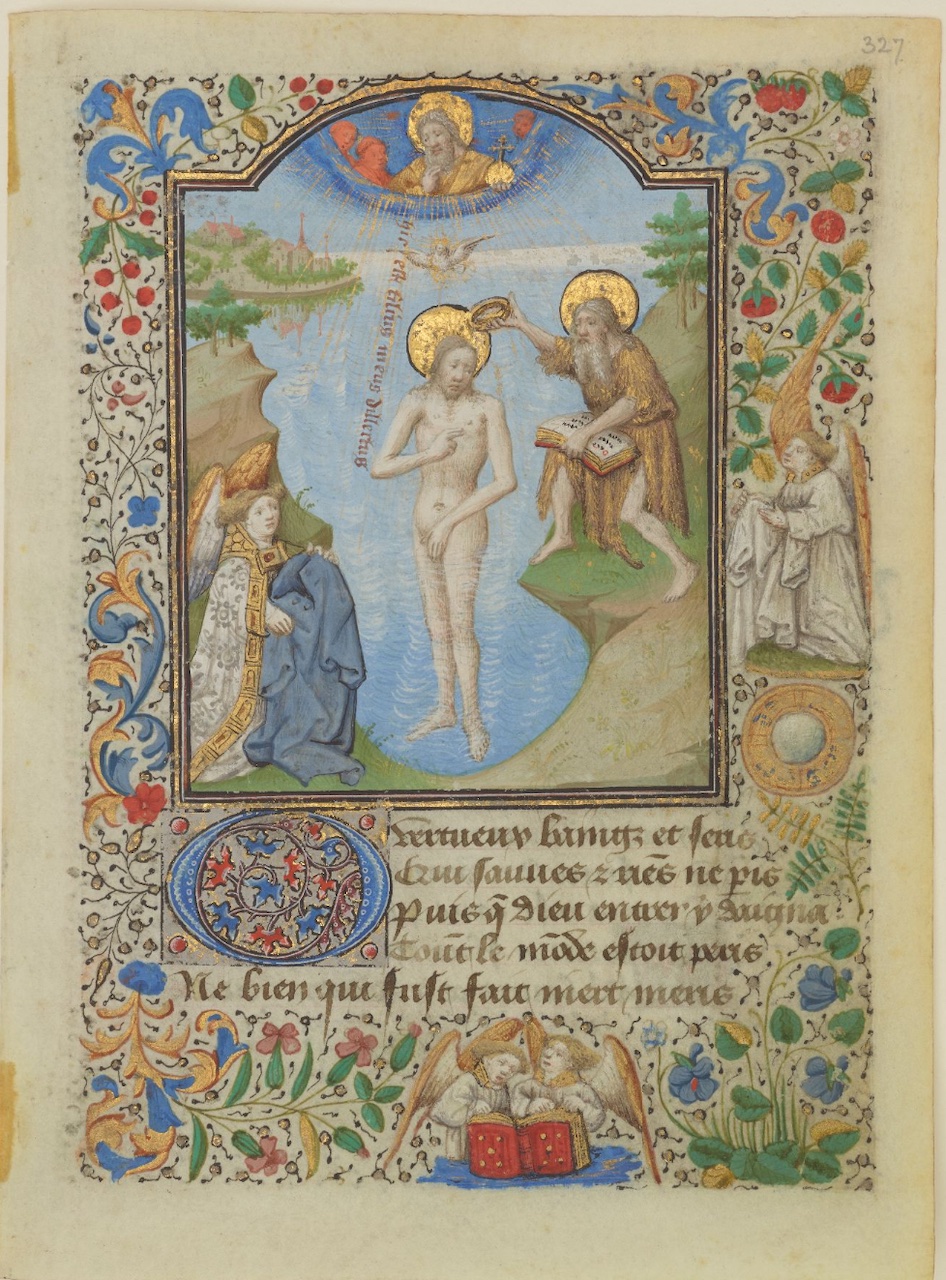 327
hic est filius meus dilectus
O vertueux baing et sens
Qui sauues
Puis q̄ dieu entrer y daigna
Tout le mōde estoit peris
Ne bien qui fust fait mert meris